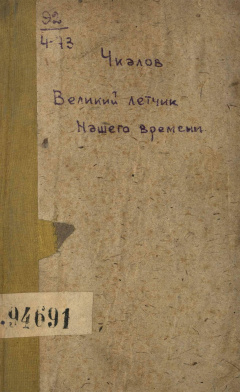 92
4-73
Чкалов
Великий летчик
Нашего времени
.94691